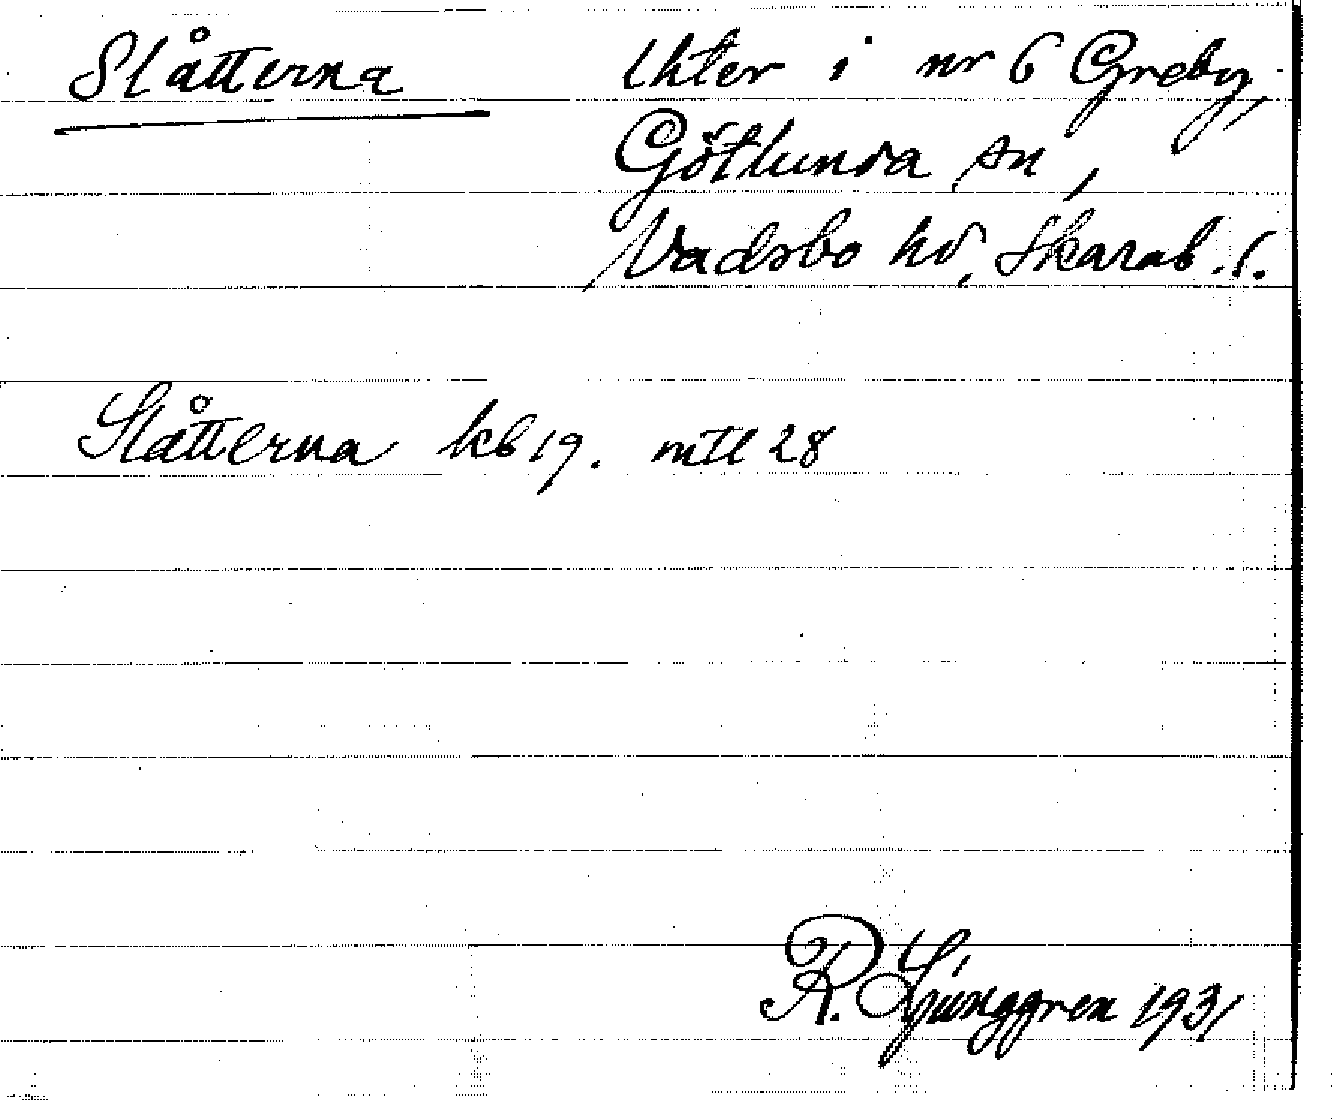 Slåtterna lhter i nr 6 Greby,
Götlunda sn,
Vadsbo hd, Skarab. l.
Slåtterna kb 19. mtl 28
R. Ljunggren 1931